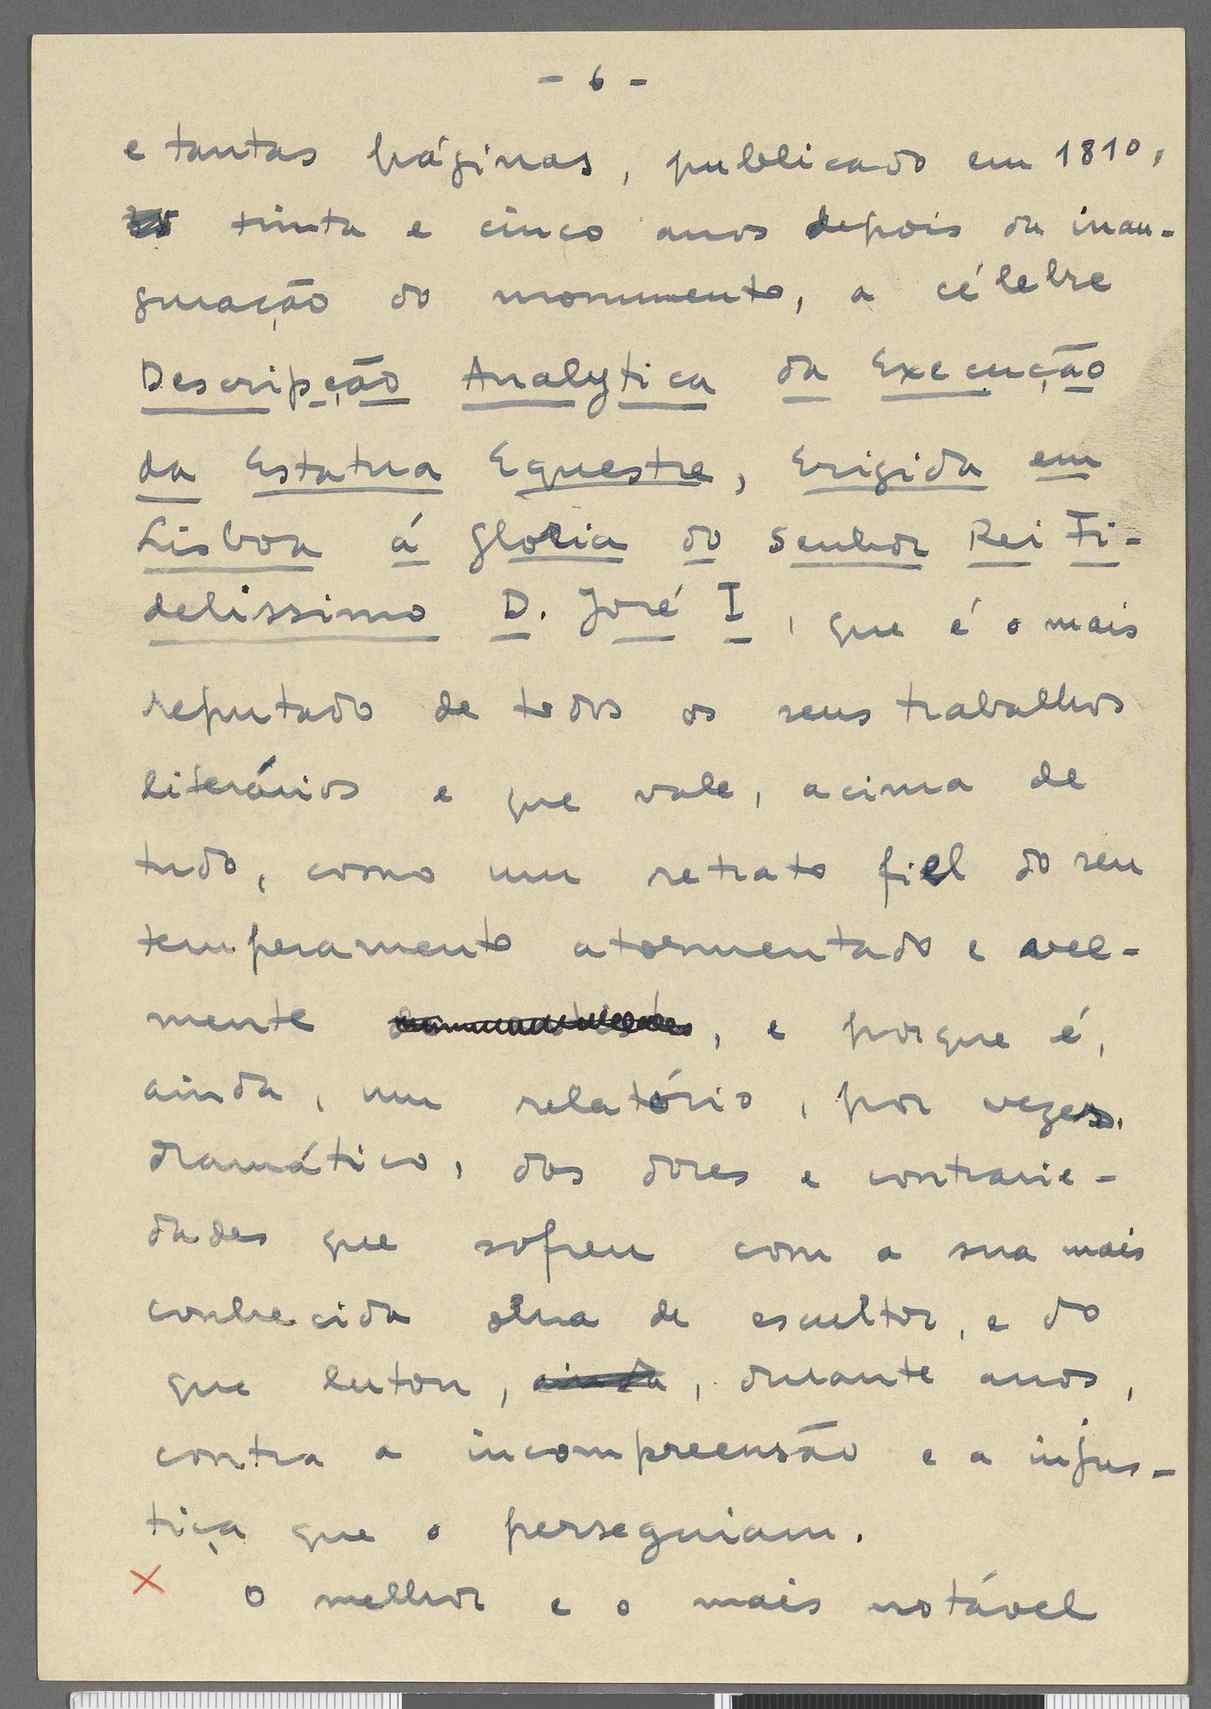 - 6 -
e tantas páginas, publicado em 1810,
trinta e cinco anos depois da inau-
guração do monumento, a célebre
Descripção Analytica da Execução
da Estatua Equestre, Erigida em
Lisboa á gloria do Senhor Rei Fi-
delissimo D. José I, que é o mais
reputado de todos os seus trabalhos
literários e que vale, acima de
tudo, como um retrato fiel do seu
temperamento atormentado e
mente , e porque é,
ainda, um relatório, por vezes,
dramático, das dores e contrarie-
dades que sofreu com a sua mais
conhecida obra de escultor, e do
que lutou, ainda, durante anos,
contra a incompreensão e a injus-
tiça que o perseguiam.
O melhor e o mais notável